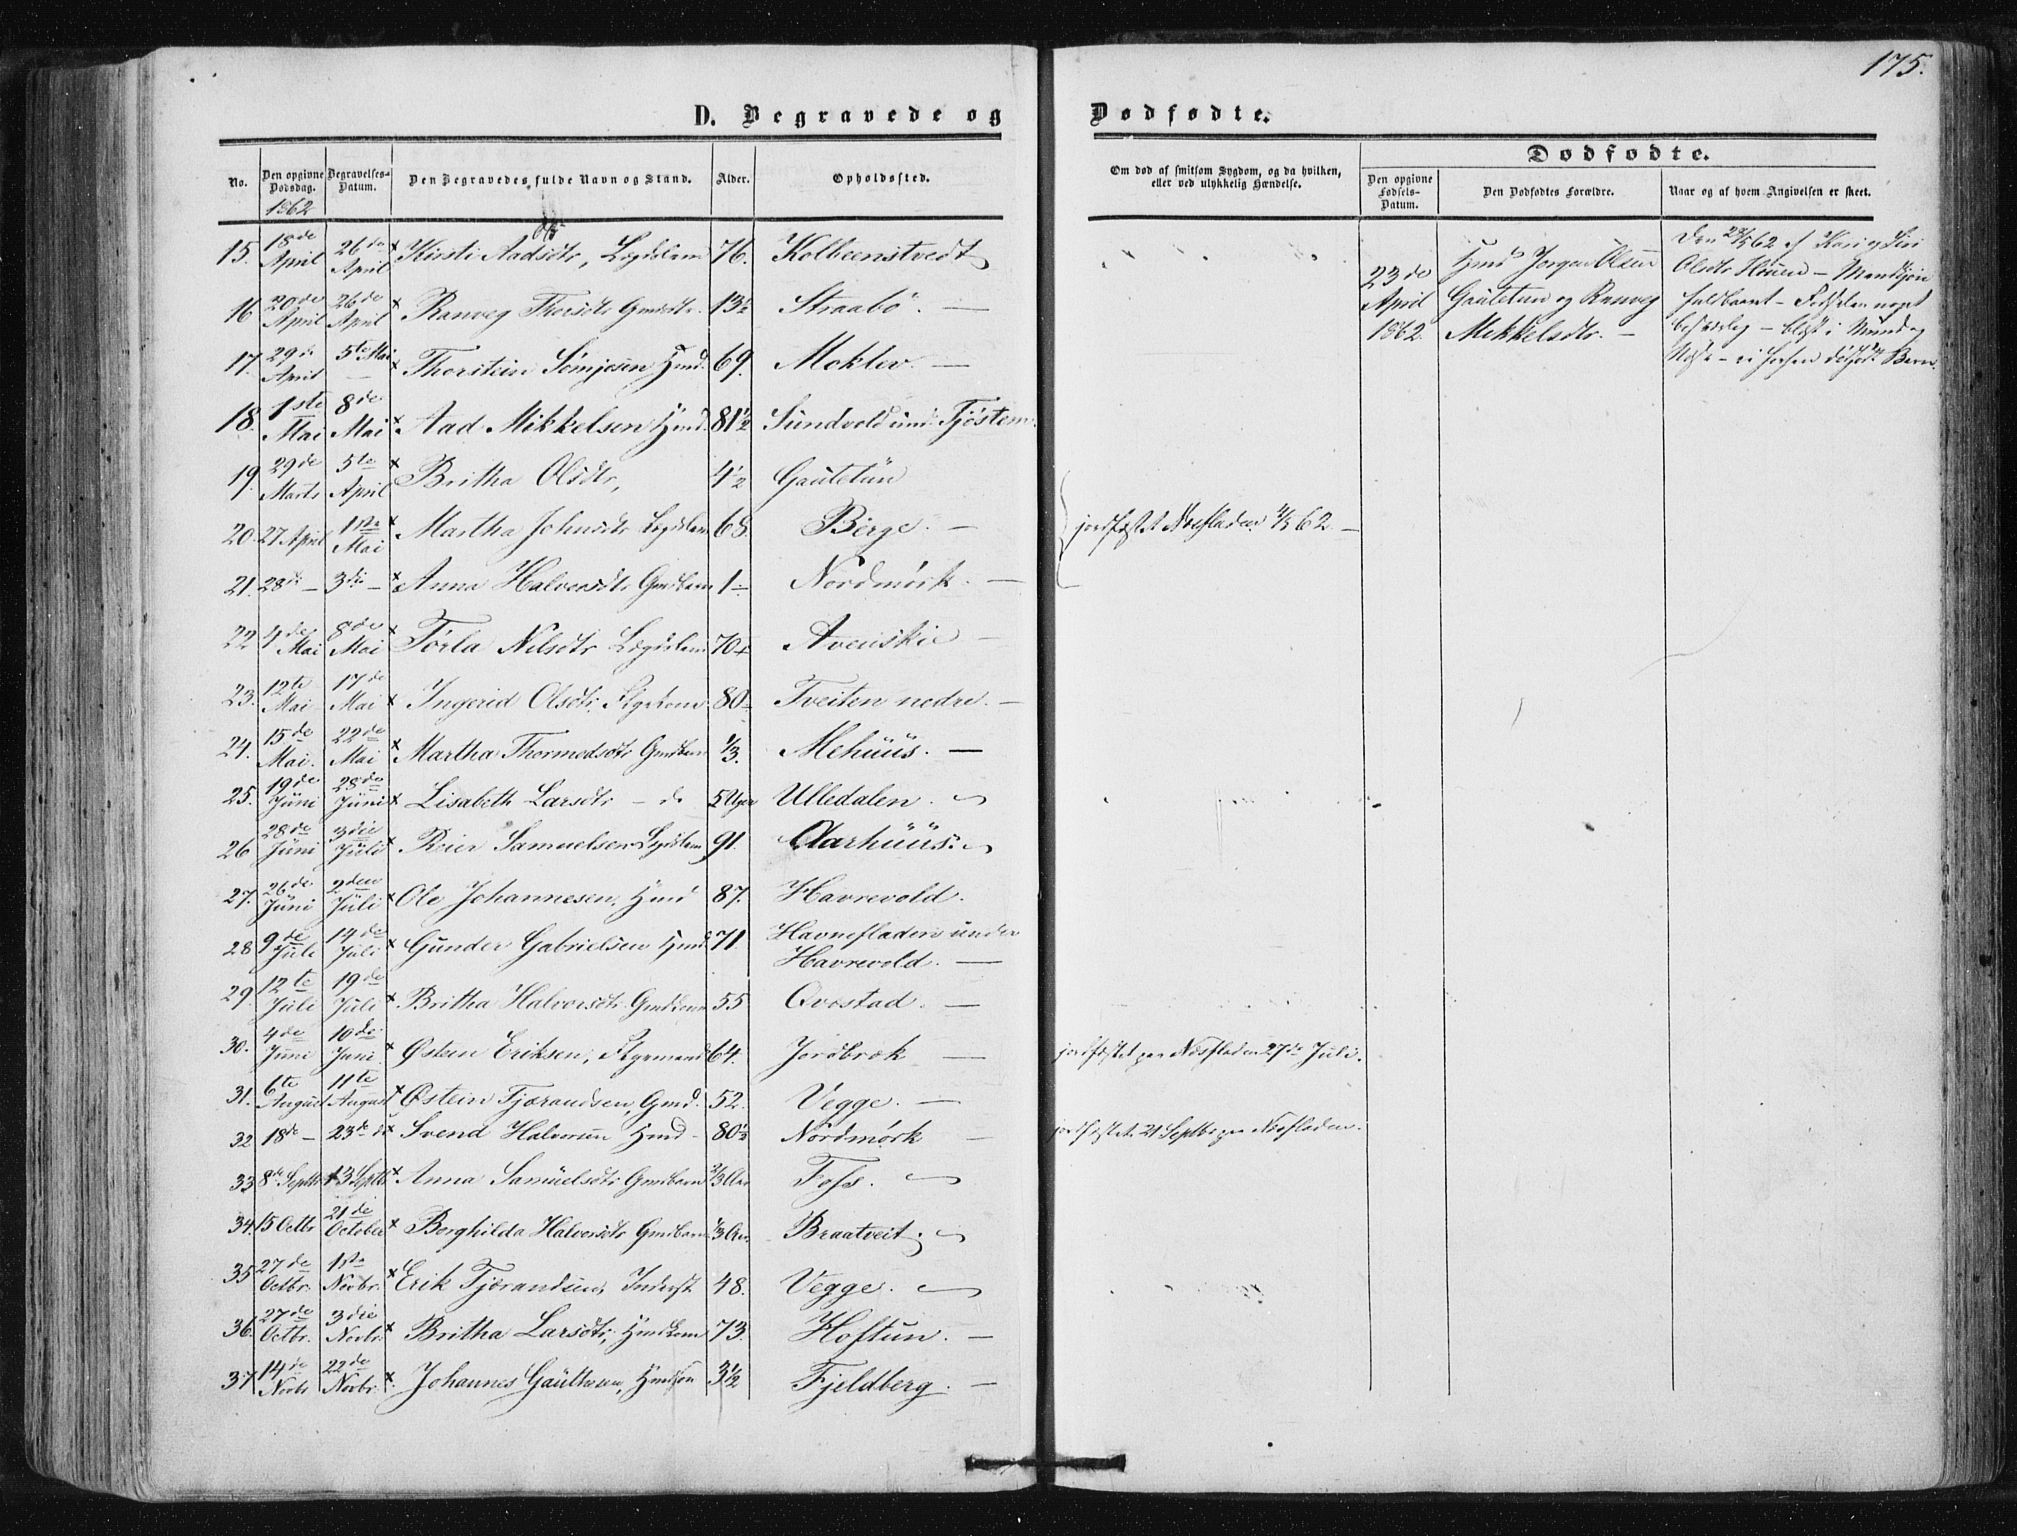 175.
D. Begravede og Dødfødte.
No. Den opgivne Dødsdag. Begravelses-Datum. Den Begravedes fulde Navn og Stand. Alder. Opholdssted.
Om død af smitsom Sygdom, og da hvilken, eller ved ulykkelig Hændelse.
Dødfødte.
Den opgivne Fødsels-Datum. Den Dødfødtes Forældre. Naar og af hvem Angivelsen er skeet.
1862
15. 18de April 26de April × Kirsti Aadsdtr, Lægdslem 76. Kolbeenstvedt
16 20de April 26de April × Ranveg Thorsdtr Gmdsdtr. 13½ Straabø. —
17. 29de April 5te Mai × Thorstein Sømjesen Hmd. 69. Moklev. —
18. 1ste Mai 8de Mai × Aad Mikkelsen Hmd. 81½ Sundvold und: Tjøstem.
19. 29de Marts 5te April × Britha Olsdtr, 4½ Gautetun
20. 27 April 1ste Mai × Martha Johnsdtr Lægdslem 68. Berge. — jordfæstet Næsfladen 4/5 62. —
21. 28de — 3die — × Anna Halvorsdtr Gmdbarn 1 — Nordmørk. —
22 4de Mai 8de Mai × Torla Nilsdtr Lægdslem 70 Avenskie —
23. 12te Mai 17de Mai × Ingerid Olsdtr, Flgekone 80 Tveiten nedre. —
24. 15de Mai. 22de Mai × Martha Thormodsdtr Gmdbarn 1/3. Mehuus. —
25. 19de Juni 28de Juni × Lisabeth Larsdtr — do 5 Uger Ulledalen.
26 28de Juni 3die Juli × Reier Samuelsen Lgdslem 91. Aarhuus.
27. 26de Juni 2den Juli × Ole Johannesen, Hmd 87. Havrevold.
28 9de Juli 14de Juli × Gunder Gabrielsen Hmd. 71 Havnefladen under Havrevold. —
29. 12te Juli 19de Juli × Britha Halvorsdtr Gmdkone 55 Qvestad. —
30. 4de Juni 10de Juni. × Østen Eriksen, Flgemand 64. Jordbrek — jordfæstet paa Næsfladen 27de Juli.
31. 6te August 11te August × Østein Tjerandsen, Gmd. 52. Vegge. —
32 18de — 23de do × Svend Halvorsen Hmd — 80½ Nordmørk — jordfæstet 21 Septbr paa Næsfladen.
33 8de Septbr 13 Septbr × Anna Samuelsdtr Gmdbarn 2/3 Aar Foss.
34. 15 Octbr 21de October × Borghilda Halvorsdtr Gmdbarn 1/3 Aar. Braatveit.
35 27de Octbr. 1ste Novbr. × Erik Tjerandsen, Inderst 48. Vegge.
36. 27de Octbr. 3die Novbr. × Britha Larsdtr, Hmdkone 73. Hoftun. —
37 14de Novbr 22de Novbr. × Johannes Gauthesen, Hmdsøn 3½ Fjeldberg. —
23de April 1862. Hmd Jørgen Olsen Gautetun og Ranveg Mikkelsdtr. —
Den 24/5 62 af Kari og Siri
Olsdtr — Mandkjøn
fuldbaaret — Fødselen noget
besværlig — blæst i Mund og
Næse — ei forhen dødfødt Barn.